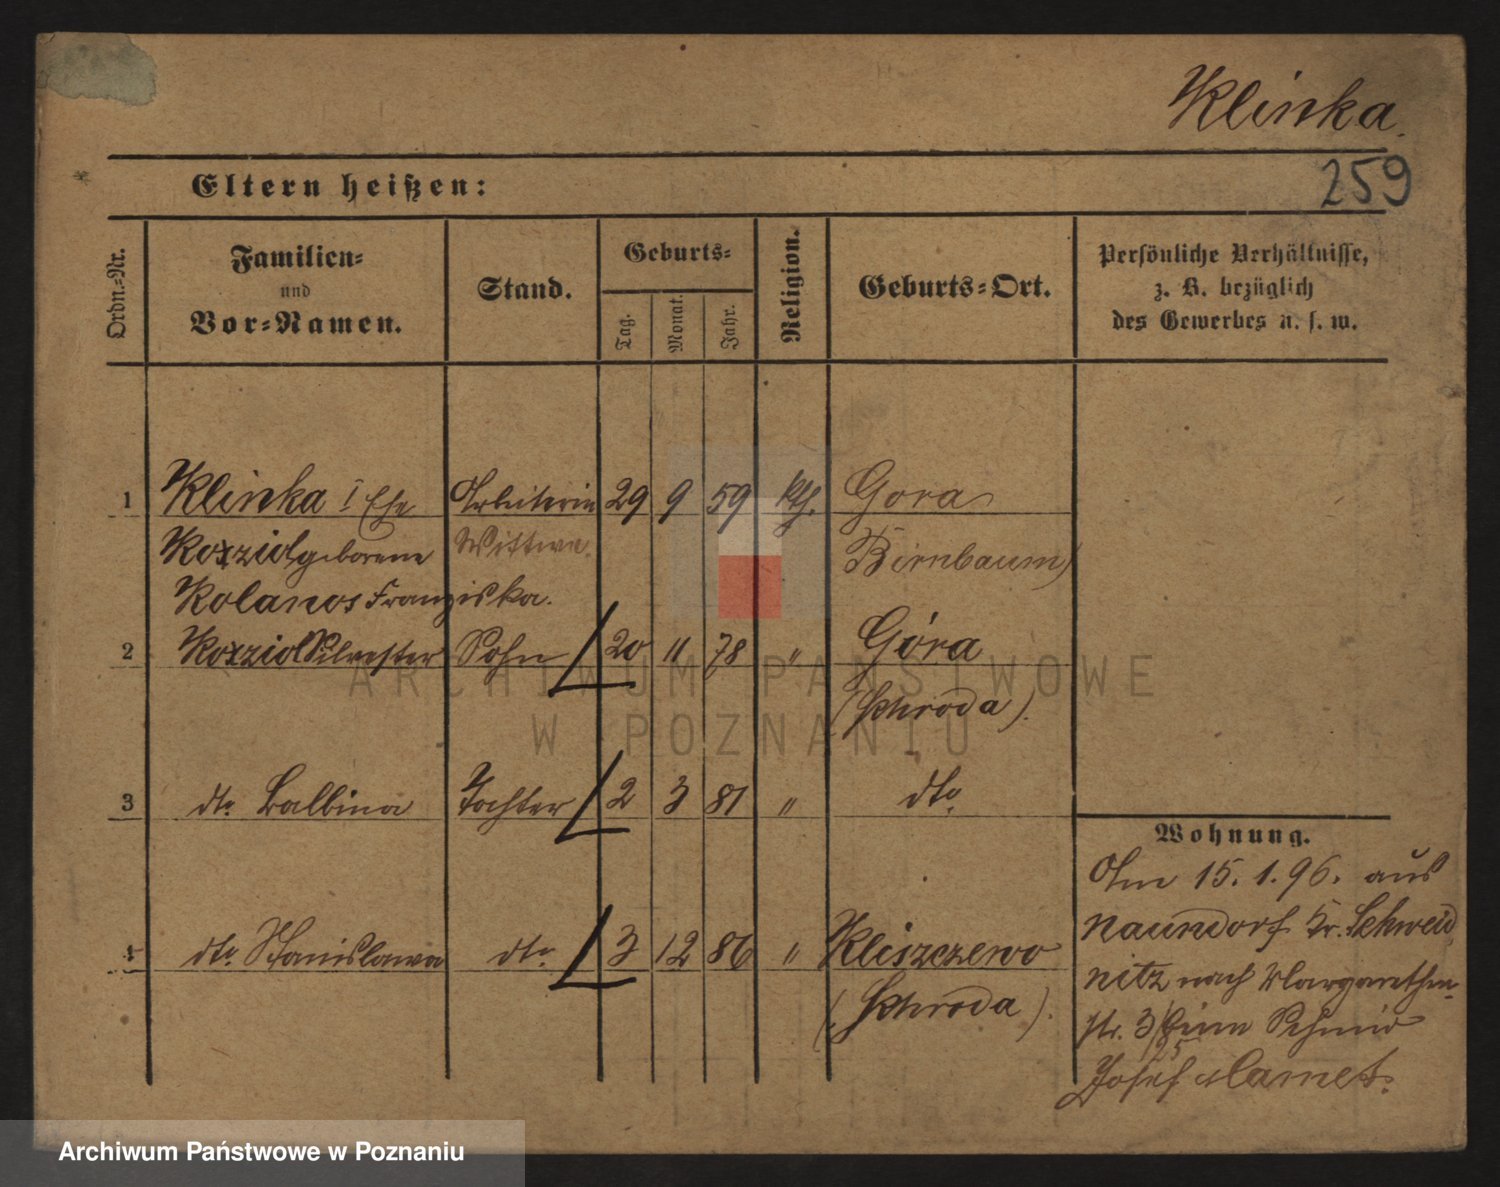 Klinka.
259
Eltern heißen:
Ordn.=Nr.
Familien=
und
Vor=Namen.
Stand.
Geburts=
Tag.
Monat.
Jahr.
Religion.
Geburts=Ort.
Persönliche Verhältnisse,
z. B. bezüglich
des Gewerbes u. s. w.
1 Klinka I Ehe Arbeiterin 29 9 59 kth. Gora
Kozziol geborene Wittwe. Birnbaum)
Kolanos Franziska.
2 Kozziol Silvester Sohn 20 11 78 " Góra
(Schroda).
3 dto Balbina Tochter 2 3 81 " dto
4 dto Stanislawa dto 3 12 86 " Kliszczewo
(Schroda).
Wohnung.
Am 15. 1. 96. aus
Naundorf Kr. Schweid
nitz nach Margarethen
str. 3 beim Schmid
Josef
ARCHIWUM PAŃSTWOWE
W POZNANIU
Archiwum Państwowe w Poznaniu